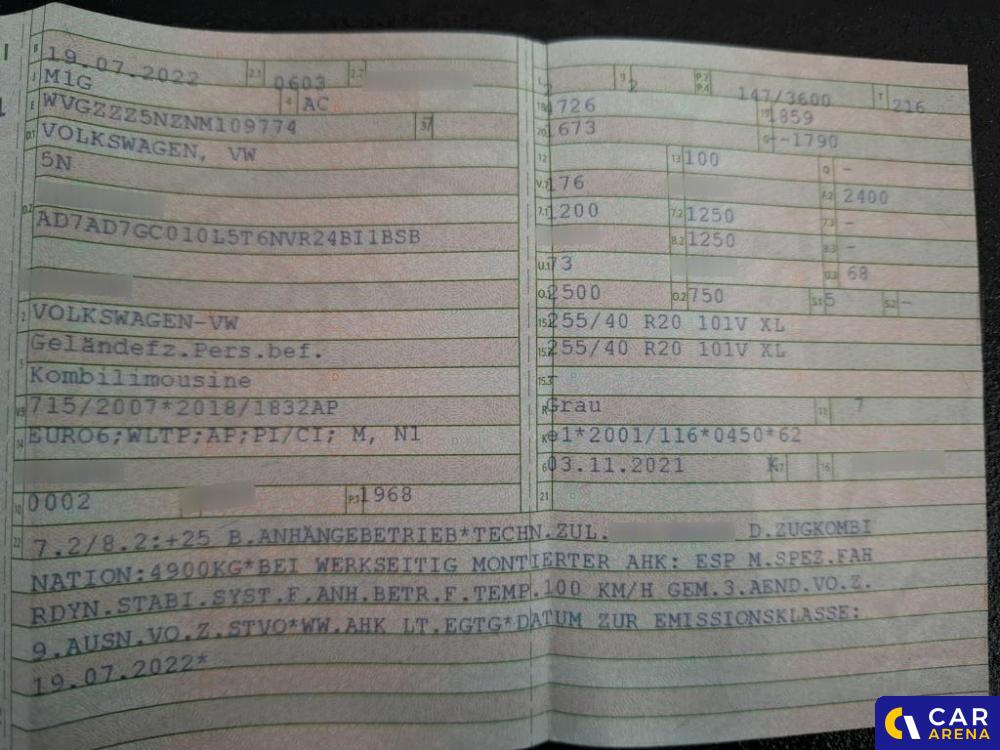 B 19.07.2022 2.1 0603 2.2
J M1G 4 AC
E WVGZZZ5NZNM109774
D.1 VOLKSWAGEN, VW
5N
D.2
AD7AD7GC010L5T6NVR24BI1BSB
2 VOLKSWAGEN-VW
5 Geländefz.Pers.bef.
Kombilimousine
V.9 715/2007*2018/1832AP
14 EURO6;WLTP;AP;PI/CI; M, N1
10 0002 P.1 1968
L 2 9 2 P.2 P.4 147/3600 T 216
18 4726 19 1859
20 1673 G --1790
12 13 100 Q -
V.7 176 F.2 2400
7.1 1200 7.2 1250 7.3 -
8.2 1250 8.3 -
U.1 73 U.3 68
O.1 2500 O.2 750 S.1 5 S.2 -
15.1 255/40 R20 101V XL
15.2 255/40 R20 101V XL
15.3 -
R Grau 11 7
K e1*2001/116*0450*62
6 03.11.2021 17 K 16
21
22 7.2/8.2:+25 B.ANHÄNGEBETRIEB*TECHN.ZUL. D.ZUGKOMBI
NATION:4900KG*BEI WERKSEITIG MONTIERTER AHK: ESP M.SPEZ.FAH
RDYN.STABI.SYST.F.ANH.BETR.F.TEMP.100 KM/H GEM.3.AEND.VO.Z.
9.AUSN.VO.Z.STVO*WW.AHK LT.EGTG*DATUM ZUR EMISSIONSKLASSE:
19.07.2022*
CAR
ARENA